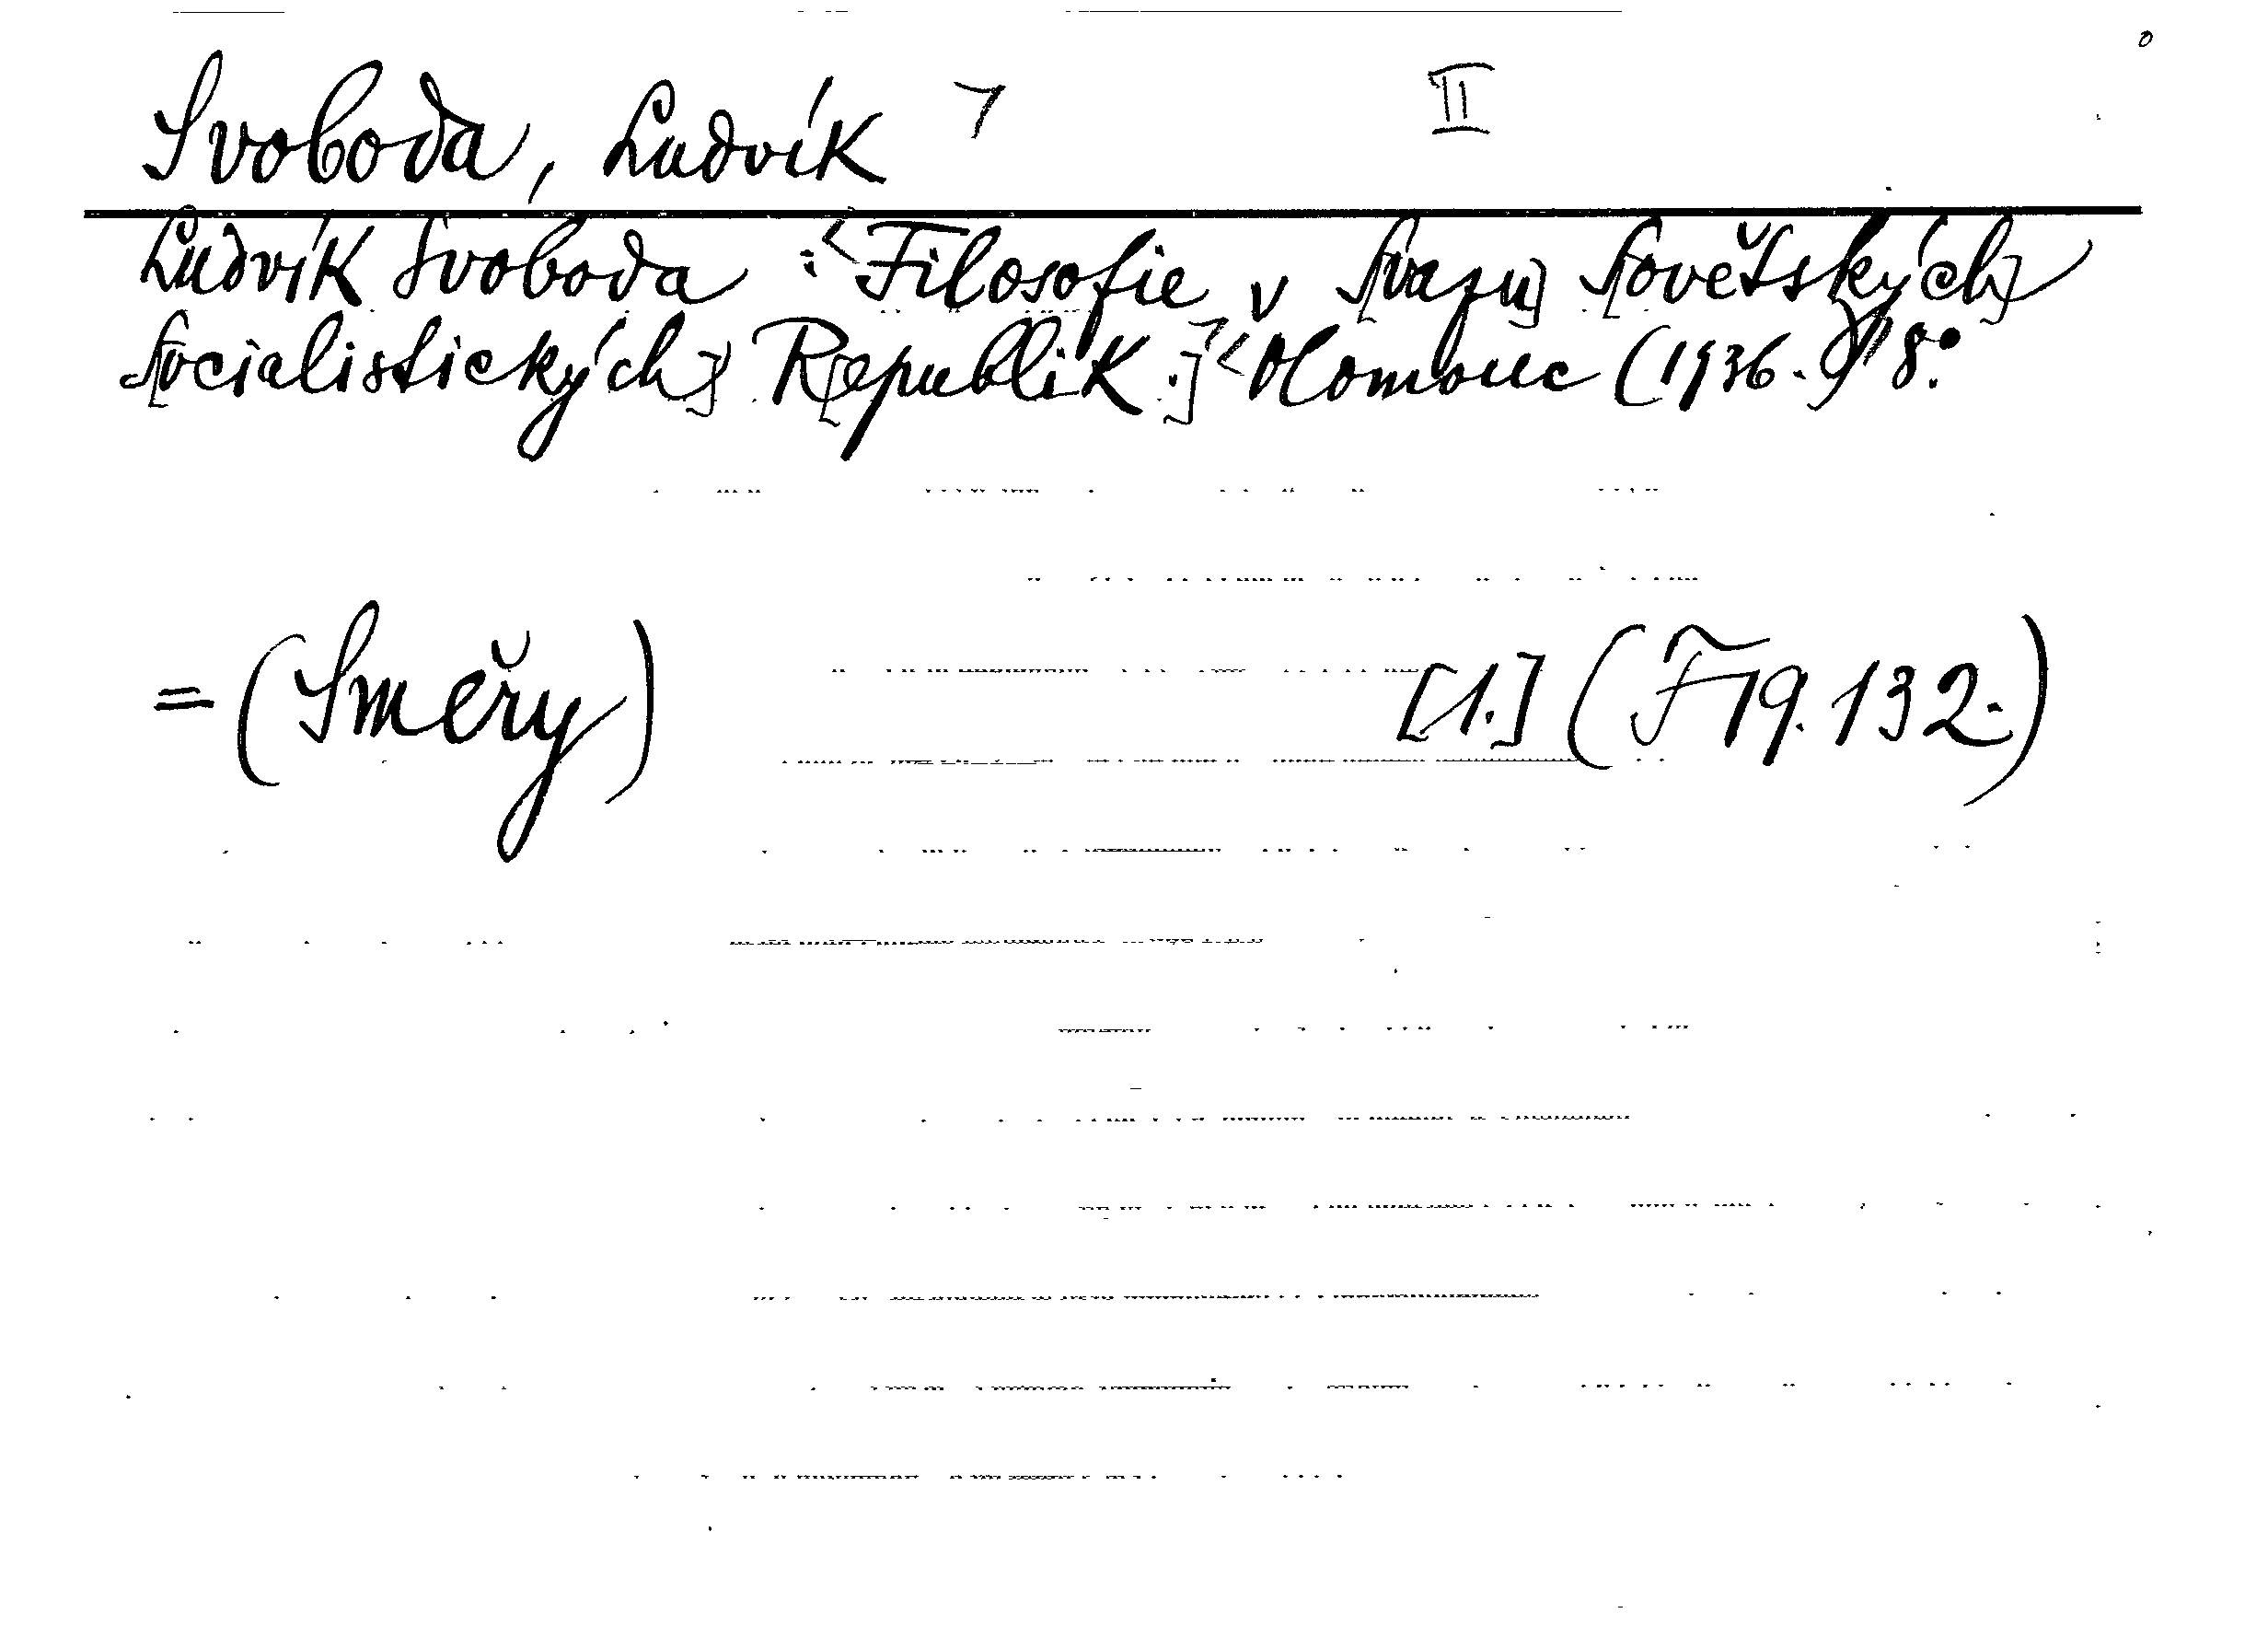 Svoboda, Ludvík 7 II
Ludvík Svoboda : <Filosofie v S[vazu] S[ovětských]
S[ocialistických] R[epublik.]> <Olomouc (1936.) 8°.
= (Směry) [1.] (F 19.132.)